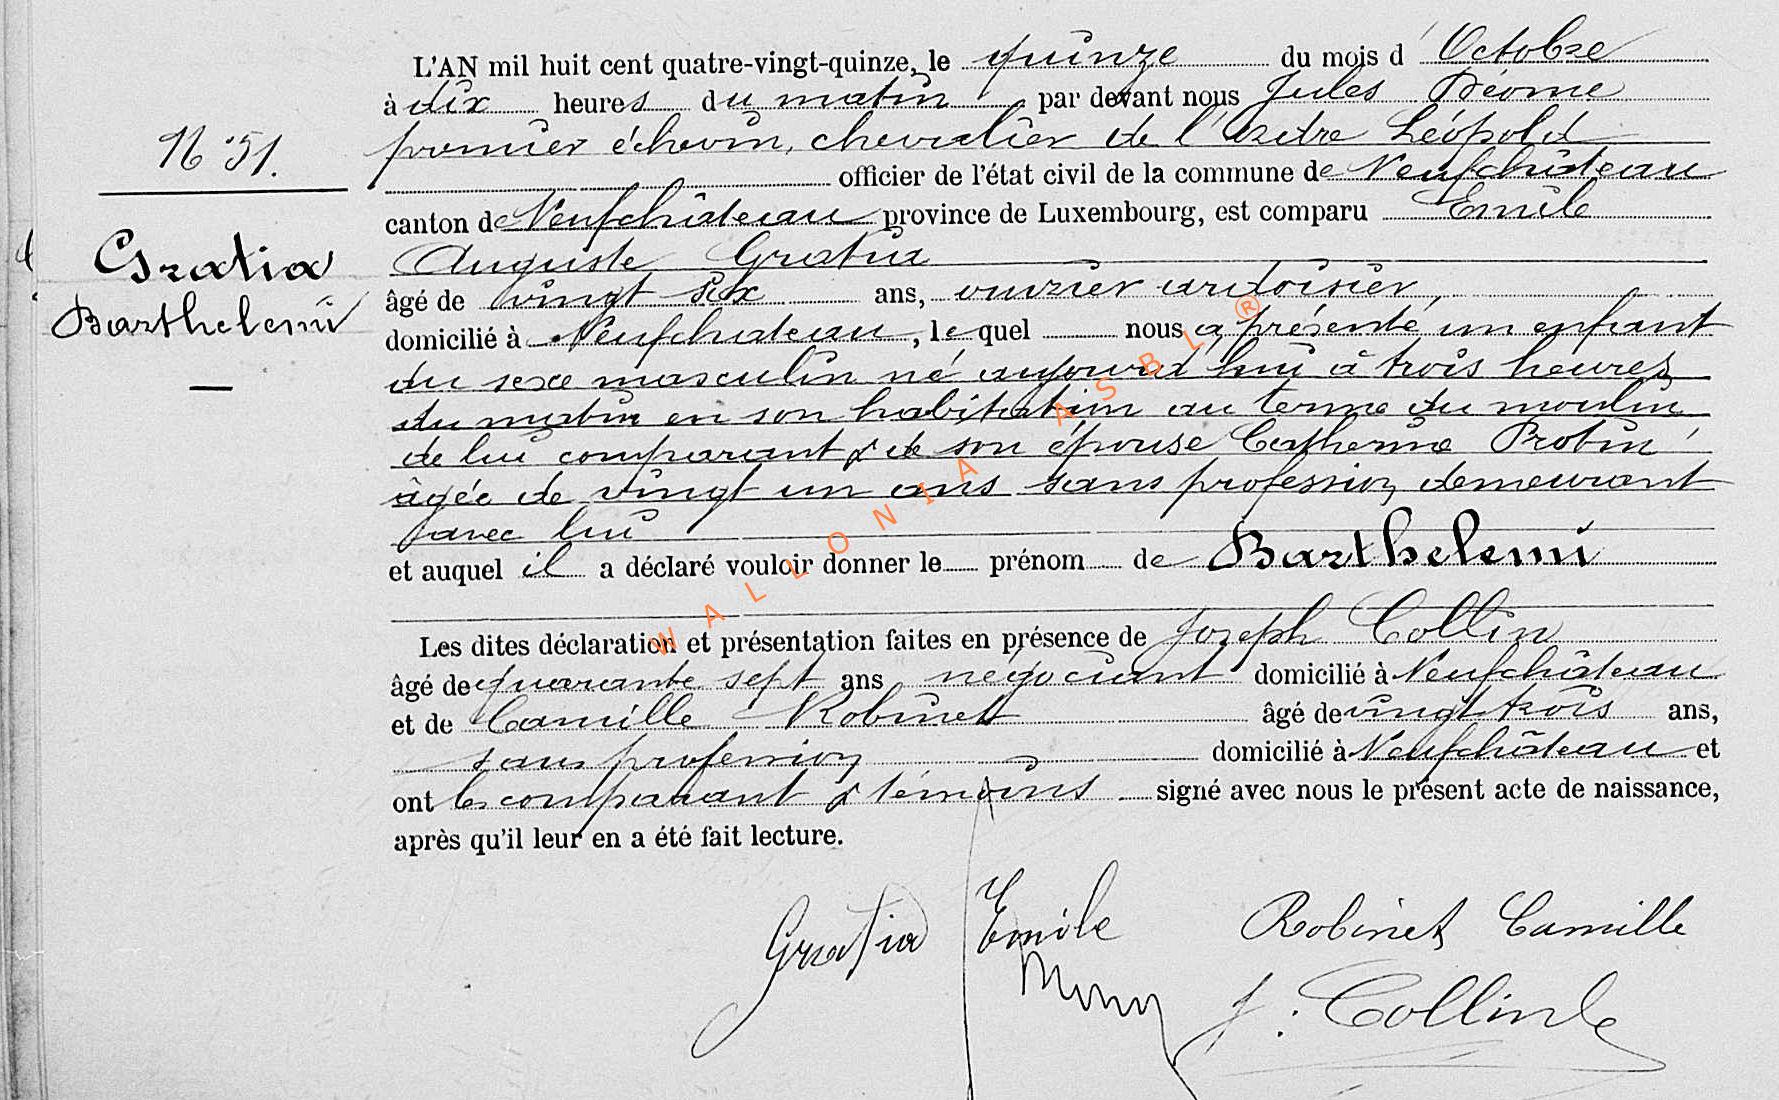 L'AN mil huit cent quatre-vingt-quinze, le quinze du mois d'Octobre
à dix heures du matin par devant nous Jules
premier échevin, chevalier de l'ordre Léopold
N° 51.
officier de l'état civil de la commune de Neufchâteau
canton de Neufchâteau province de Luxembourg, est comparu Emile
Gratia
Barthelemi
Auguste Gratia
âgé de vingt six ans, ouvrier ardoisier,
domicilié à Neufchateau, lequel nous a présenté un enfant
du sexe masculin né aujourd'hui à trois heures
du matin en son habitation au terme du moulin
de lui comparant & de son épouse Catherine Probin
âgée de vingt un ans sans profession demeurant
avec lui
et auquel il a déclaré vouloir donner le prénom de Barthelemi
Les dites déclaration et présentation faites en présence de Joseph Collin
âgé de quarante sept ans négociant domicilié à Neufchâteau
et de Camille Robinet âgé de vingt trois ans,
sans profession domicilié à Neufchâteau et
ont les comparant & témoins signé avec nous le présent acte de naissance,
après qu'il leur en a été fait lecture.
Gratia Emile Robinet Camille
J: Collin
WALLONIA ASBL ®